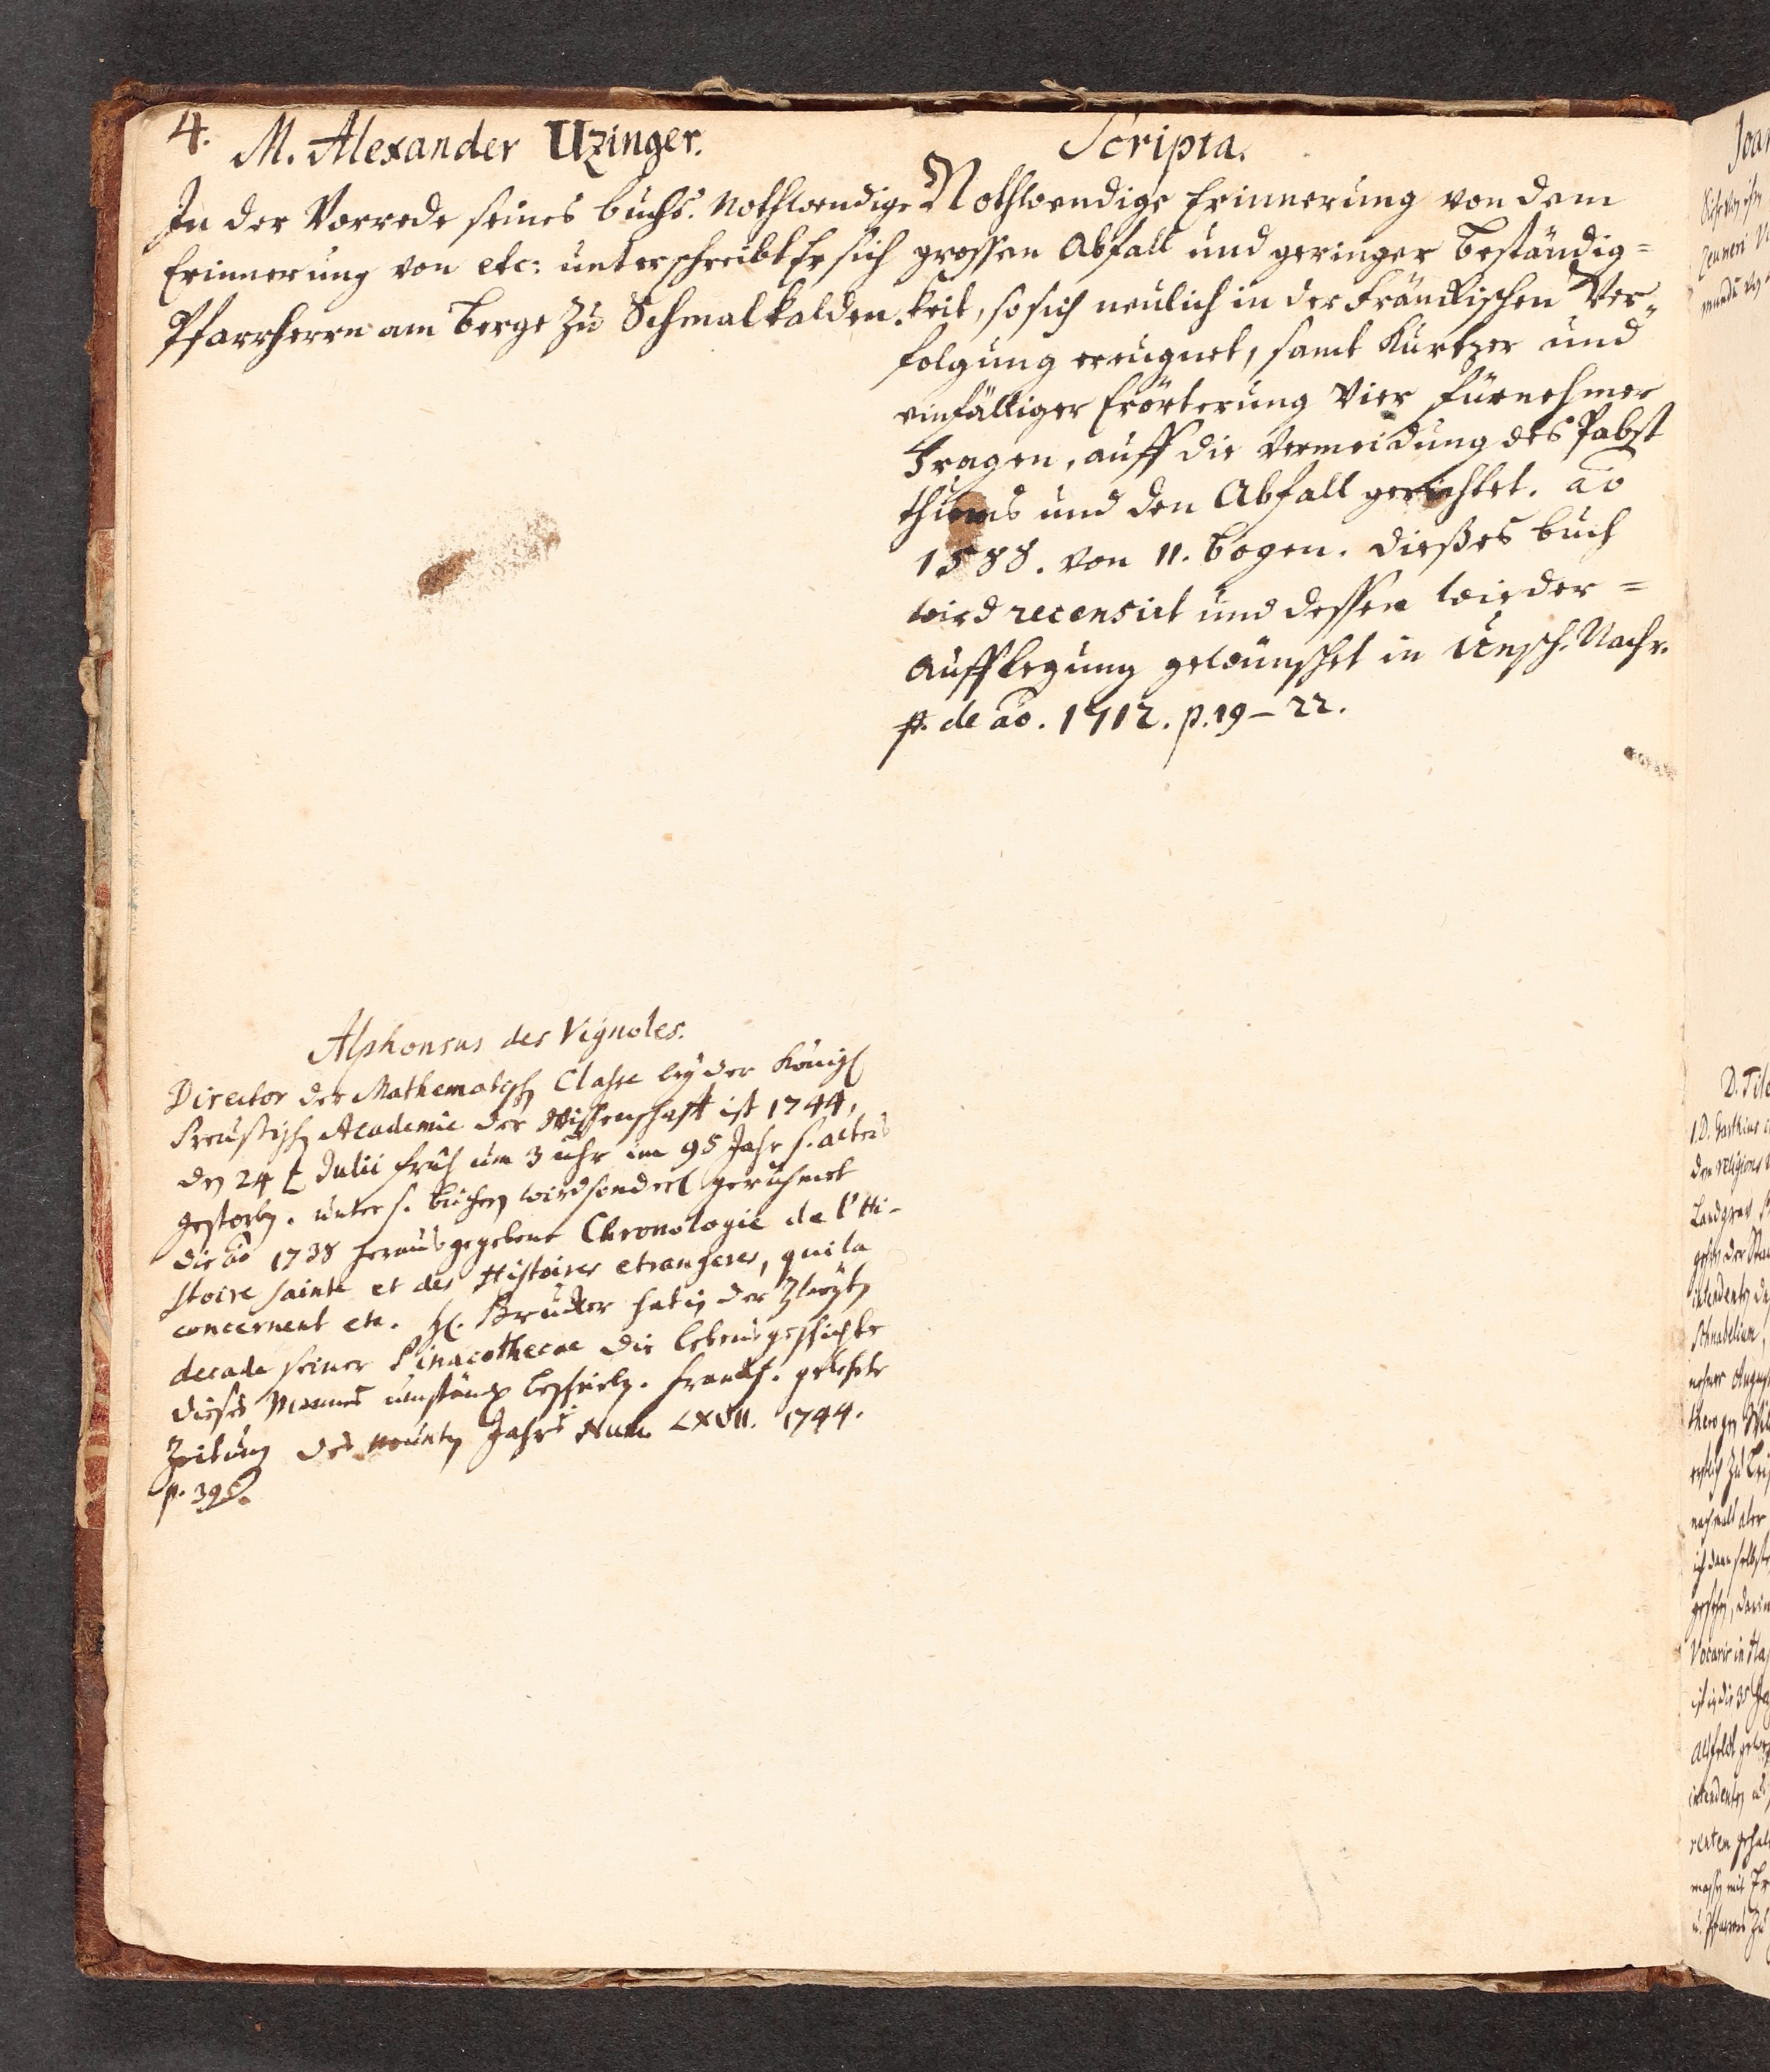 4.
M. Alexander Uzinger.
In der Vorrede seines buchs. Nothwendige
Erinnerung von etc: unterschreibt Er sich
Pfarrherrn am Berge zu Schmalkalden.
Scripta.
Nothwendige Erinnerung von dem
grossen Abfall und geringer Beständig=
keit, so sich neulich in der Fränckischen Ver=
folgung ereugnet, samt kurtzer und
einfältiger Erörterung Vier fürnehmer
Fragen, auff die Vermeidung des Pabst
thums und den Abfall gerichtet. ao
1588. von 11. Bogen. Dießes buch
wird recensirt und dessen wieder=
Aufflegung gewünschet in Unsch. Nachr.
p. de ao. 1712. p. 19-22.
Alphonsus des Vignoles.
Director der Mathematisch Classe bey der Königl
Preußisch Academie der Wissenschafft ist 1744,
den 24 Julii früh um 3 uhr im 95 Jahr s. alters
gestorben. unter s. büchern wird sonderl gerühmet
die ao 1738 herausgegebene Chronologie de l'Hi-
stoire sainte et des Histoires etrangeres, qui la
concernent etc. H. Brucker hat in der zweyten
decade seiner Pinacothecae die lebensgeschichte
dieses Mannes umständl beschrieben. Franckf. gelehrte
Zeitung des neunten Jahrs Num. LXVII. 1744.
Joan
D. Tile